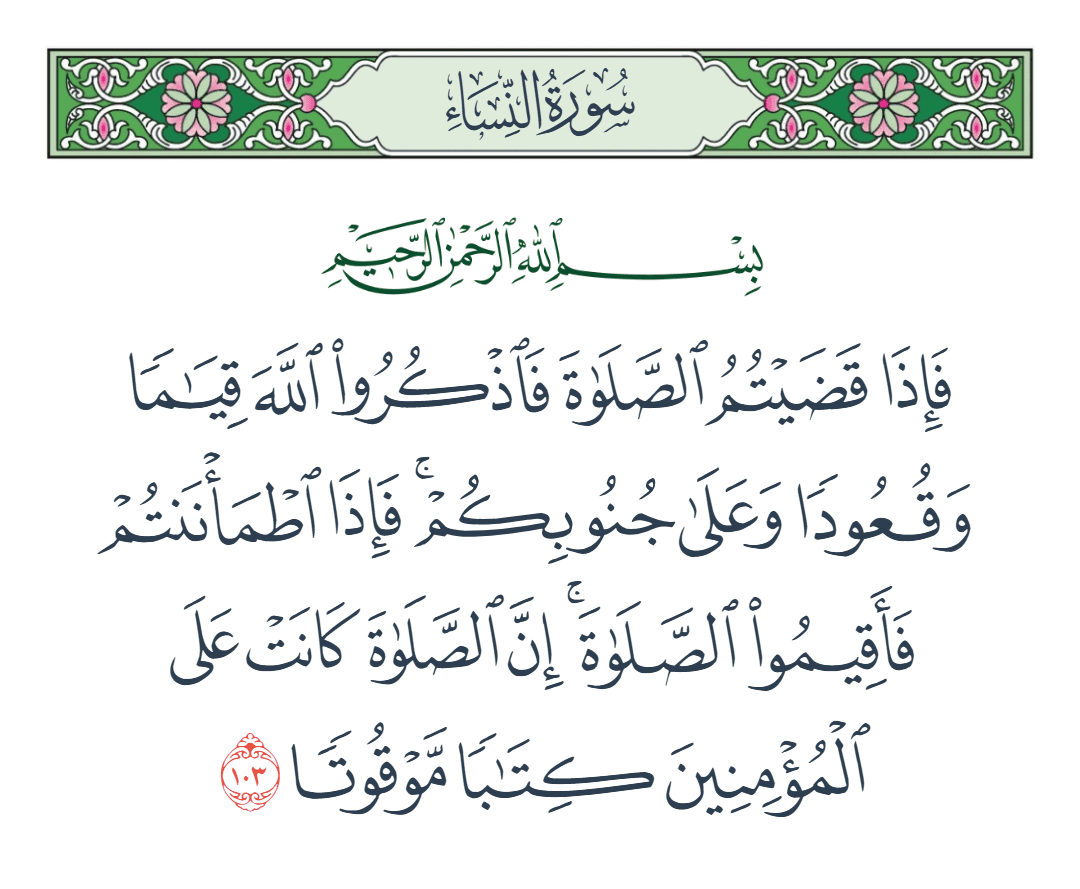 سُورَةُ النِّسَاءِ
بِسْمِ ٱللَّهِ ٱلرَّحْمَٰنِ ٱلرَّحِيمِ
فَإِذَا قَضَيْتُمُ ٱلصَّلَوٰةَ فَٱذْكُرُوا۟ ٱللَّهَ قِيَـٰمًا
وَقُعُودًا وَعَلَىٰ جُنُوبِكُمْ ۚ فَإِذَا ٱطْمَأْنَنتُمْ
فَأَقِيمُوا۟ ٱلصَّلَوٰةَ ۚ إِنَّ ٱلصَّلَوٰةَ كَانَتْ عَلَى
ٱلْمُؤْمِنِينَ كِتَـٰبًا مَّوْقُوتًا ١٠٣